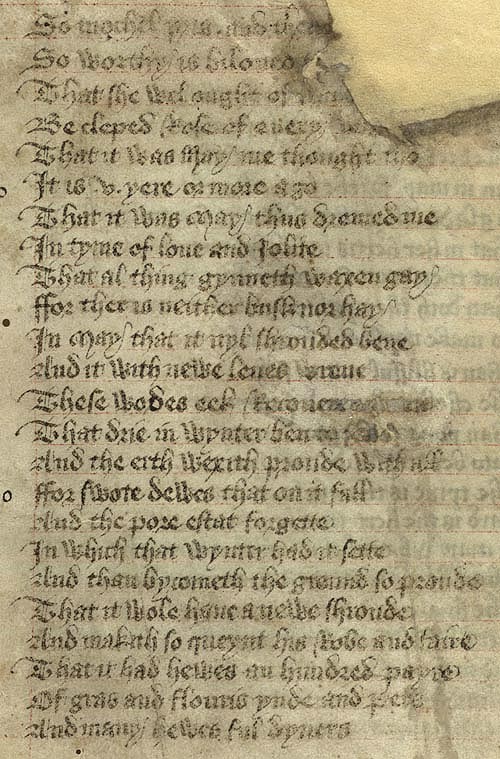 So mochel pris and ther
So worthy is biloued
That she wel ought of
Be cleped Rose of euery
That it was May me thought tho
It is .v. yere or more ago
That it was May thus dremed me
In tyme of loue and Jolite
That al thing gynneth waxen gay
ffor ther is neither busk nor hay
In May that it nyl shrouded bene
And it with newe leues wrene
These wodes eek recoueren grene
That drie in wynter ben to sene
And the erth wexith proude with all
ffor swote dewes that on it fall
And the pore estat forgette
In which that wynter had it sette
And than bycometh the ground so proude
That it wole haue a newe shroude
And makith so queynt his robe and faire
That it had hewes an hundred payre
Of gras and flouris ynde and pers
And many hewes ful dyuers